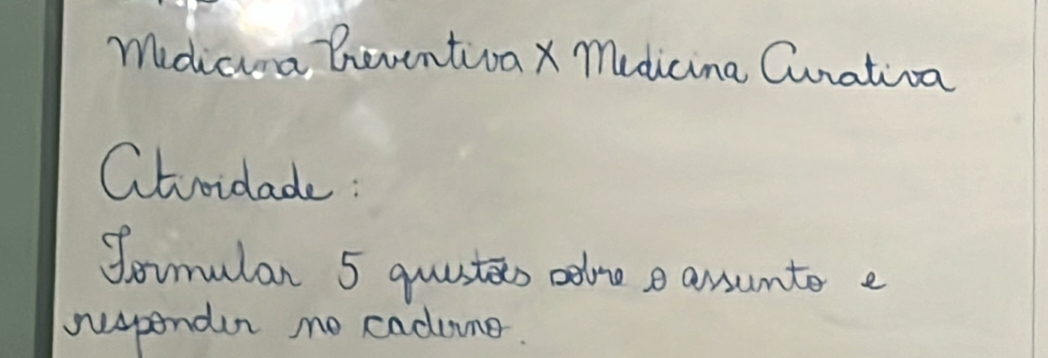 Medicina Preventiva X Medicina Curativa
Atividade:
Formular 5 questões sobre o assunto e
responder no caderno.